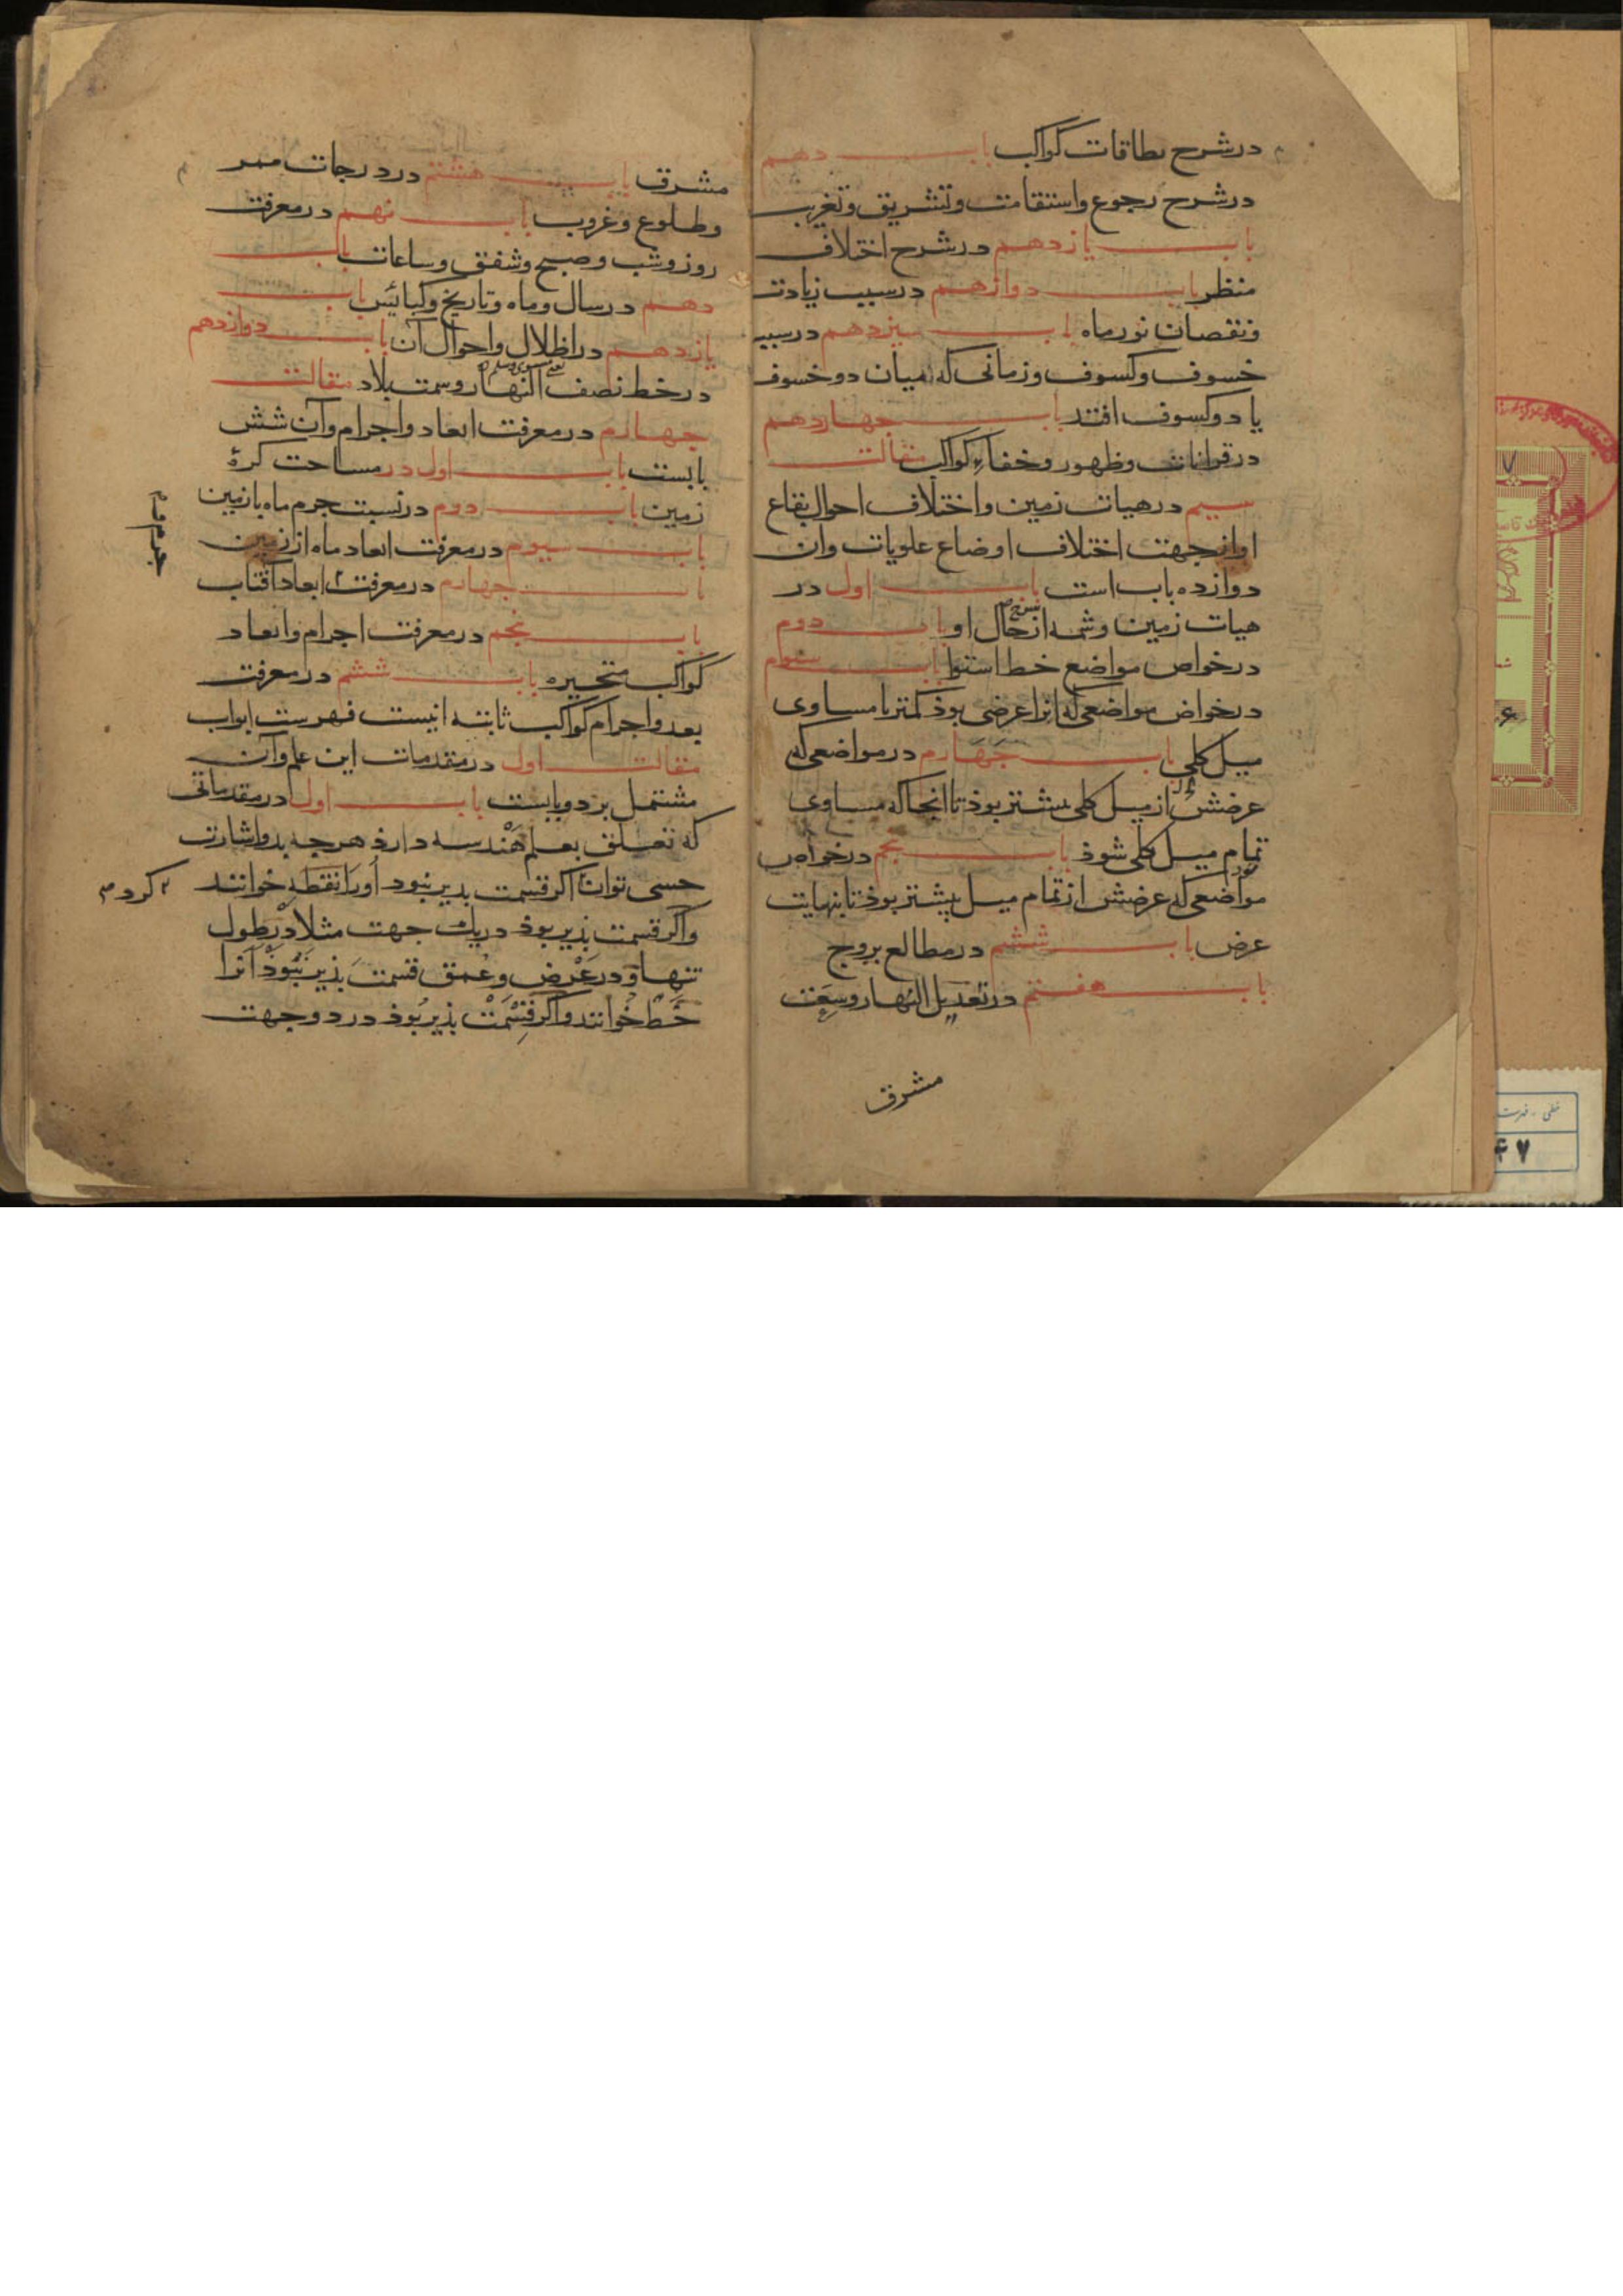 در شرح نطاقات کواکب باب دهم
در شرح رجوع و استقامت و تشریق و تغریب
باب یازدهم در شرح اختلاف
منظر باب دوازهم در سبب زیادت
و نقصان نور ماه باب سیزدهم در سبب
خسوف و کسوف و زمانی که میان دو خسوف
یا دو کسوف افتد باب چهاردهم
در قرانات و ظهور و خفاء کواکب مقالت
سیم در هیات زمین و اختلاف احوال بقاع
او از جهت اختلاف اوضاع علویات وان
دوازده باب است باب اول در
هیات زمین و شمه از حال او باب دوم
در خواص مواضع خط استوا باب سوم
در خواص مواضعی که انرا عرضی بوذ کمتر یا مساوی
میل کلی باب چهارم در مواضعی که
عرضش از میل کلی بیشتر بوذ تا انجا که مساوی
تمام میل کلی شوذ باب پنجم در خواص
مواضعی که عرضش از تمام میل بیشتر بوذ تا بنهایت
عرض باب ششم در مطالع بروج
باب هفتم در تعدیل النهار و سعت
مشرق
مشرق باب هشتم در درجات ممر
و طلوع و غروب باب نهم در معرفت
روز و شب و صبح و شفق و ساعات باب
دهم در سال و ماه و تاریخ و کبائس باب
یازدهم در اظلال و احوال آن باب دوازدهم
در خط نصف النهار و سمت بلاد مقالت
چهارم در معرفت ابعاد و اجرام وآن شش
بابست باب اول در مساحت کرهٔ
زمین باب دوم در نسبت جرم ماه با زمین
باب سیوم در معرفت ابعاد ماه از زمین
باب چهارم در معرفت ابعاد آفتاب
باب پنجم در معرفت اجرام و ابعاد
کواکب متحیره باب ششم در معرفت
بعد و اجرام کواکب ثابته اینست فهرست ابواب
مقالت اول در مقدمات این علم وآن
مشتمل بر دو بابست باب اول در مقدماتی
که تعلق بعلم هندسه دارذ هرچه بدو اشارت
حسی توان اگر قسمت پذیر نبود اورا نقطه خوانند
کرد
واگر قسمت پذیر بوذ در یک جهت مثلا در طول
تنها و در عرض و عمق قسمت پذیر نبوذ آنرا
خط خوانند و اگر قسمت پذیر بوذ در دو جهت